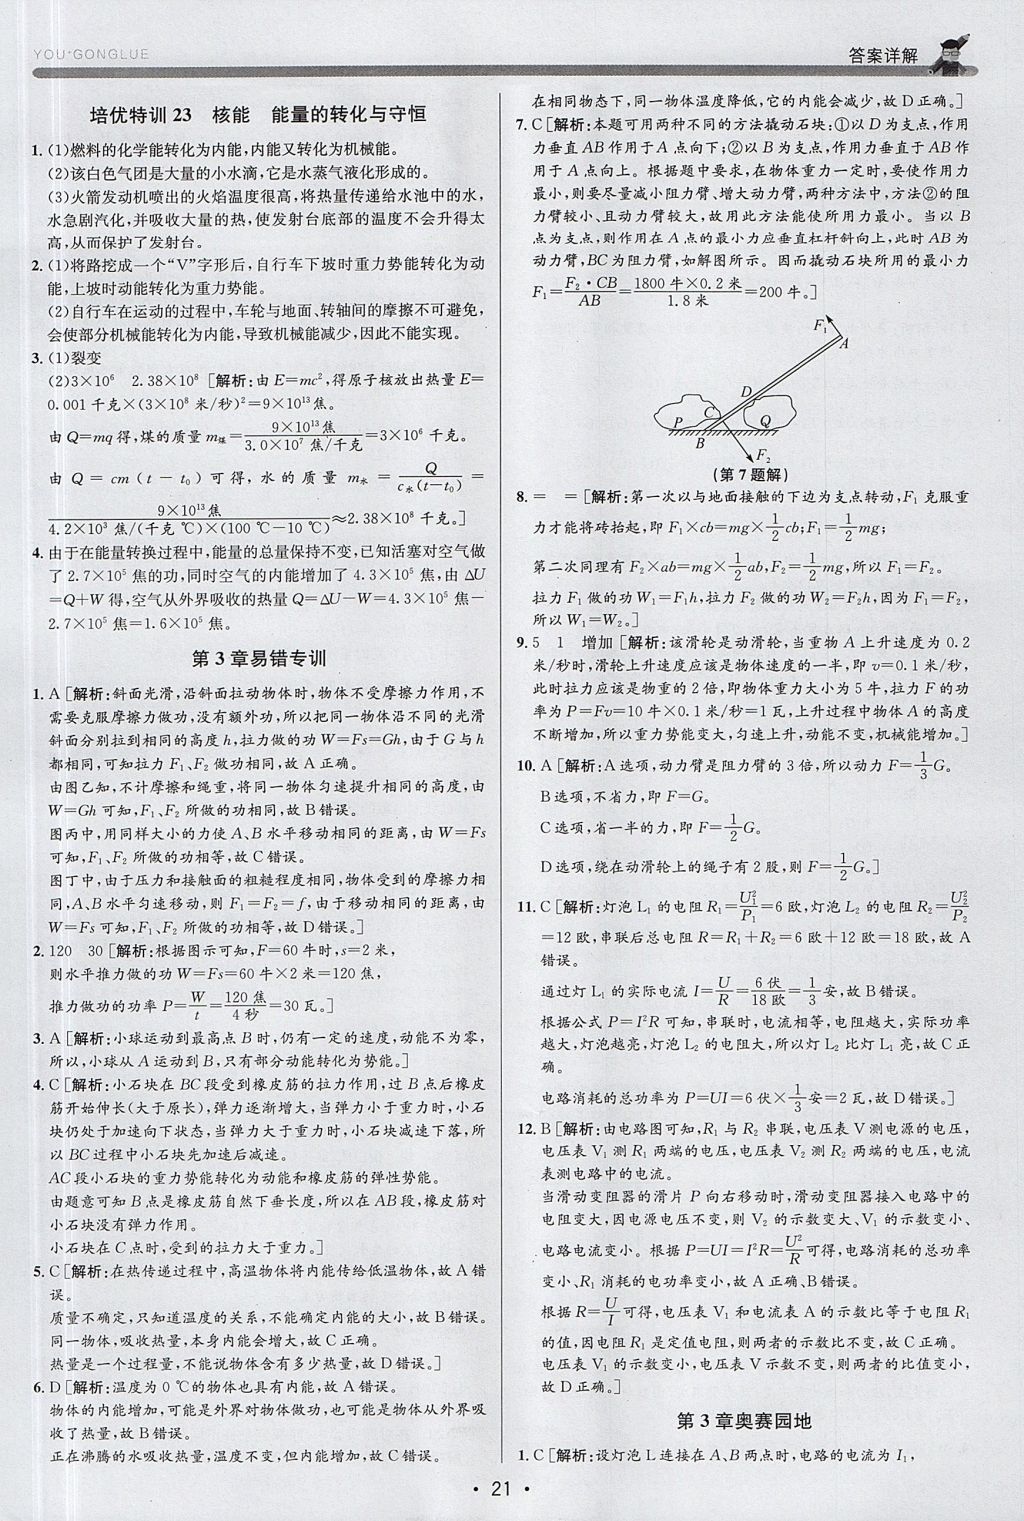 YOU+GONGLUE
答案详解
培优特训 23　核能　能量的转化与守恒
1. (1)燃料的化学能转化为内能,内能又转化为机械能。
(2)该白色气团是大量的小水滴,它是水蒸气液化形成的。
(3)火箭发动机喷出的火焰温度很高,将热量传递给水池中的水,
水急剧汽化,并吸收大量的热,使发射台底部的温度不会升得太
高,从而保护了发射台。
2. (1)将路挖成一个“V”字形后,自行车下坡时重力势能转化为动
能,上坡时动能转化为重力势能。
(2)自行车在运动的过程中,车轮与地面、转轴间的摩擦不可避免,
会使部分机械能转化为内能,导致机械能减少,因此不能实现。
3. (1)裂变
(2)3×10⁶　2.38×10⁸ [解析:由 E=mc²,得原子核放出热量 E=
0.001 千克×(3×10⁸ 米/秒)²=9×10¹³焦。
由 Q=mq 得,煤的质量 m煤=9×10¹³焦/3.0×10⁷ 焦/千克=3×10⁶ 千克。
由 Q = cm (t - t₀) 可得,水的质量 m水 = Q/c水(t-t₀) =
9×10¹³焦/4.2×10³ 焦/(千克 ℃)×(100 ℃-10 ℃)≈2.38×10⁸ 千克。]
4. 由于在能量转换过程中,能量的总量保持不变,已知活塞对空气做
了 2.7×10⁵ 焦的功,同时空气的内能增加了 4.3×10⁵ 焦,由 ΔU
=Q+W 得,空气从外界吸收的热量 Q=ΔU-W=4.3×10⁵ 焦-
2.7×10⁵ 焦=1.6×10⁵ 焦。
第 3 章易错专训
1. A [解析:斜面光滑,沿斜面拉动物体时,物体不受摩擦力作用,不
需要克服摩擦力做功,没有额外功,所以把同一物体沿不同的光滑
斜面分别拉到相同的高度 h,拉力做的功 W=Fs=Gh,由于 G 与 h
都相同,可知拉力 F₁、F₂ 做功相同,故 A 正确。
由图乙知,不计摩擦和绳重,将同一物体匀速提升相同的高度,由
W=Gh 可知,F₁、F₂ 所做的功相同,故 B 错误。
图丙中,用同样大小的力使 A、B 水平移动相同的距离,由 W=Fs
可知,F₁、F₂ 所做的功相等,故 C 错误。
图丁中,由于压力和接触面的粗糙程度相同,物体受到的摩擦力相
同,A、B 水平匀速移动,则 F₁=F₂=f,由于移动相同的距离,由 W
=Fs 可知,F₁、F₂ 所做的功相等,故 D 错误。]
2. 120　30 [解析:根据图示可知,F=60 牛时,s=2 米,
则水平推力做的功 W=Fs=60 牛×2 米=120 焦,
推力做功的功率 P=W/t=120 焦/4 秒=30 瓦。]
3. A [解析:小球运动到最高点 B 时,仍有一定的速度,动能不为零,
所以,小球从 A 运动到 B,只有部分动能转化为势能。]
4. C [解析:小石块在 BC 段受到橡皮筋的拉力作用,过 B 点后橡皮
筋开始伸长(大于原长),弹力逐渐增大,当弹力小于重力时,小石
块仍处于加速向下状态,当弹力大于重力时,小石块减速下落,所
以 BC 过程中小石块先加速后减速。
AC 段小石块的重力势能转化为动能和橡皮筋的弹性势能。
由题意可知 B 点是橡皮筋自然下垂长度,所以在 AB 段,橡皮筋对
小石块没有弹力作用。
小石块在 C 点时,受到的拉力大于重力。]
5. C [解析:在热传递过程中,高温物体将内能传给低温物体,故 A 错
误。
质量不确定,只知道温度的关系,不能确定内能的大小,故 B 错误。
同一物体,吸收热量,本身内能会增大,故 C 正确。
热量是一个过程量,不能说物体含有多少热量,故 D 错误。]
6. D [解析:温度为 0 ℃的物体也具有内能,故 A 错误。
物体的内能增加,可能是外界对物体做功,也可能是物体从外界吸
收了热量,故 B 错误。
正在沸腾的水吸收热量,温度不变,但内能增加,故 C 错误。
在相同物态下,同一物体温度降低,它的内能会减少,故 D 正确。]
7. C [解析:本题可用两种不同的方法撬动石块:①以 D 为支点,作用
力垂直 AB 作用于 A 点向下;②以 B 为支点,作用力垂直 AB 作
用于 A 点向上。根据题中要求,在物体重力一定时,要使作用力
最小,则要尽量减小阻力臂、增大动力臂,两种方法中,方法②的阻
力臂较小、且动力臂较大,故用此方法能使所用力最小。当以 B
点为支点,则作用在 A 点的最小力应垂直杠杆斜向上,此时 AB 为
动力臂,BC 为阻力臂,如解图所示。因而撬动石块所用的最小力
F₁=F₂·CB/AB=1800 牛×0.2 米/1.8 米=200 牛。]
F₁
A
D
P
C
Q
B
F₂
(第 7 题解)
8. =　= [解析:第一次以与地面接触的下边为支点转动,F₁ 克服重
力才能将砖抬起,即 F₁×cb=mg×1/2cb;F₁=1/2mg;
第二次同理有 F₂×ab=mg×1/2ab,F₂=1/2mg,所以 F₁=F₂。
拉力 F₁ 做的功 W₁=F₁h,拉力 F₂ 做的功 W₂=F₂h,因为 F₁=F₂,
所以 W₁=W₂。]
9. 5　1　增加 [解析:该滑轮是动滑轮,当重物 A 上升速度为 0.2
米/秒时,滑轮上升速度应该是物体速度的一半,即 v=0.1 米/秒,
此时拉力应该是物重的 2 倍,即物体重力大小为 5 牛,拉力 F 的功
率为 P=Fv=10 牛×0.1 米/秒=1 瓦,上升过程中物体 A 的高度
不断增加,所以重力势能变大,匀速上升,动能不变,机械能增加。]
10. A [解析:A 选项,动力臂是阻力臂的 3 倍,所以动力 F=1/3G。
B 选项,不省力,即 F=G。
C 选项,省一半的力,即 F=1/2G。
D 选项,绕在动滑轮上的绳子有 2 股,则 F=1/2G。]
11. C [解析:灯泡 L₁ 的电阻 R₁=U₁²/P₁=6 欧,灯泡 L₂ 的电阻 R₂=U₂²/P₂
=12 欧,串联后总电阻 R=R₁+R₂=6 欧+12 欧=18 欧,故 A
错误。
通过灯 L₁ 的实际电流 I=U/R=6 伏/18 欧=1/3安,故 B 错误。
根据公式 P=I²R 可知,串联时,电流相等,电阻越大,实际功率
越大,灯泡越亮,灯泡 L₂ 的电阻大,所以灯 L₂ 比灯 L₁ 亮,故 C 正
确。
电路消耗的总功率为 P=UI=6 伏×1/3安=2 瓦,故 D 错误。]
12. B [解析:由电路图可知,R₁ 与 R₂ 串联,电压表 V 测电源的电压,
电压表 V₁ 测 R₁ 两端的电压,电压表 V₂ 测 R₂ 两端的电压,电流
表测电路中的电流。
当滑动变阻器的滑片 P 向右移动时,滑动变阻器接入电路中的
电阻变大,因电源电压不变,则 V₂ 的示数变大、V₁ 的示数变小、
电路电流变小。根据 P=UI=I²R=U²/R可得,电路消耗的总功率
变小、R₁ 消耗的电功率变小,故 A 正确、B 错误。
根据 R=U/I可得,电压表 V₁ 和电流表 A 的示数比等于电阻 R₁
的值,因电阻 R₁ 是定值电阻,则两者的示数比不变,故 C 正确。
电压表 V₁ 的示数变小,电压表 V 示数不变,则两者的比值变小,
故 D 正确。]
第 3 章奥赛园地
1. C [解析:设灯泡 L 连接在 A、B 两点时,电路的电流为 I₁,
• 21 •